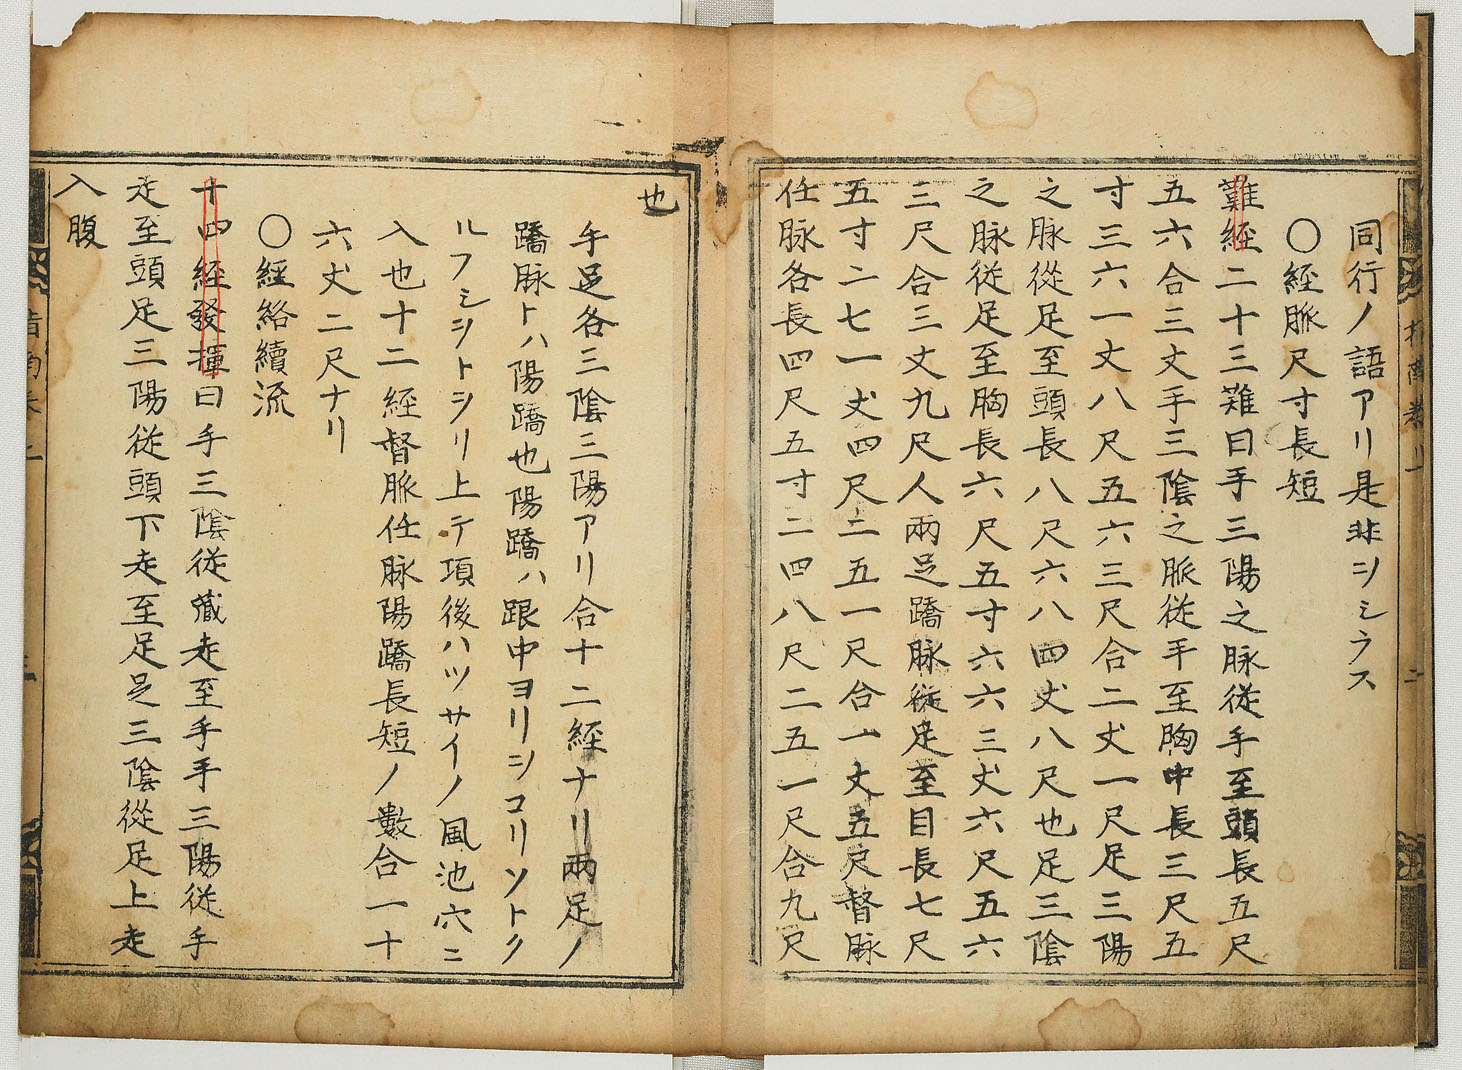 同行ノ語アリ是非シミラス
〇經脈尺寸長短
難經二十三難曰手三陽之脉從手至頭長五尺
五六合三丈手三陰之脈從手至胸中長三尺五
寸三六一丈八尺五六三尺合二丈一尺足三陽
之脉從足至頭長八尺六八四丈八尺也足三陰
之脉從足至胸長六尺五寸六六三丈六尺五六
三尺合三丈九尺人兩足蹻脉從足至目長七尺
五寸二七一丈四尺二五一尺合一丈五尺督脉
任脉各長四尺五寸二四八尺二五一尺合九尺
也
手足各三陰三陽アリ合十二經ナリ兩足ノ
蹻脉トハ陽蹻也陽蹻ハ跟中ヨリシコリソトク
ルフシシトシリ上テ項後ハツサイノ風池穴ニ
入也十二經督脈任脉陽蹻長短ノ數合一十
六丈二尺ナリ
〇經絡續流
十四經發揮曰手三陰從藏走至手手三陽從手
走至頭足三陽從頭下走至足足三陰從足上走
入腹
指南卷二
二
指南卷二
三